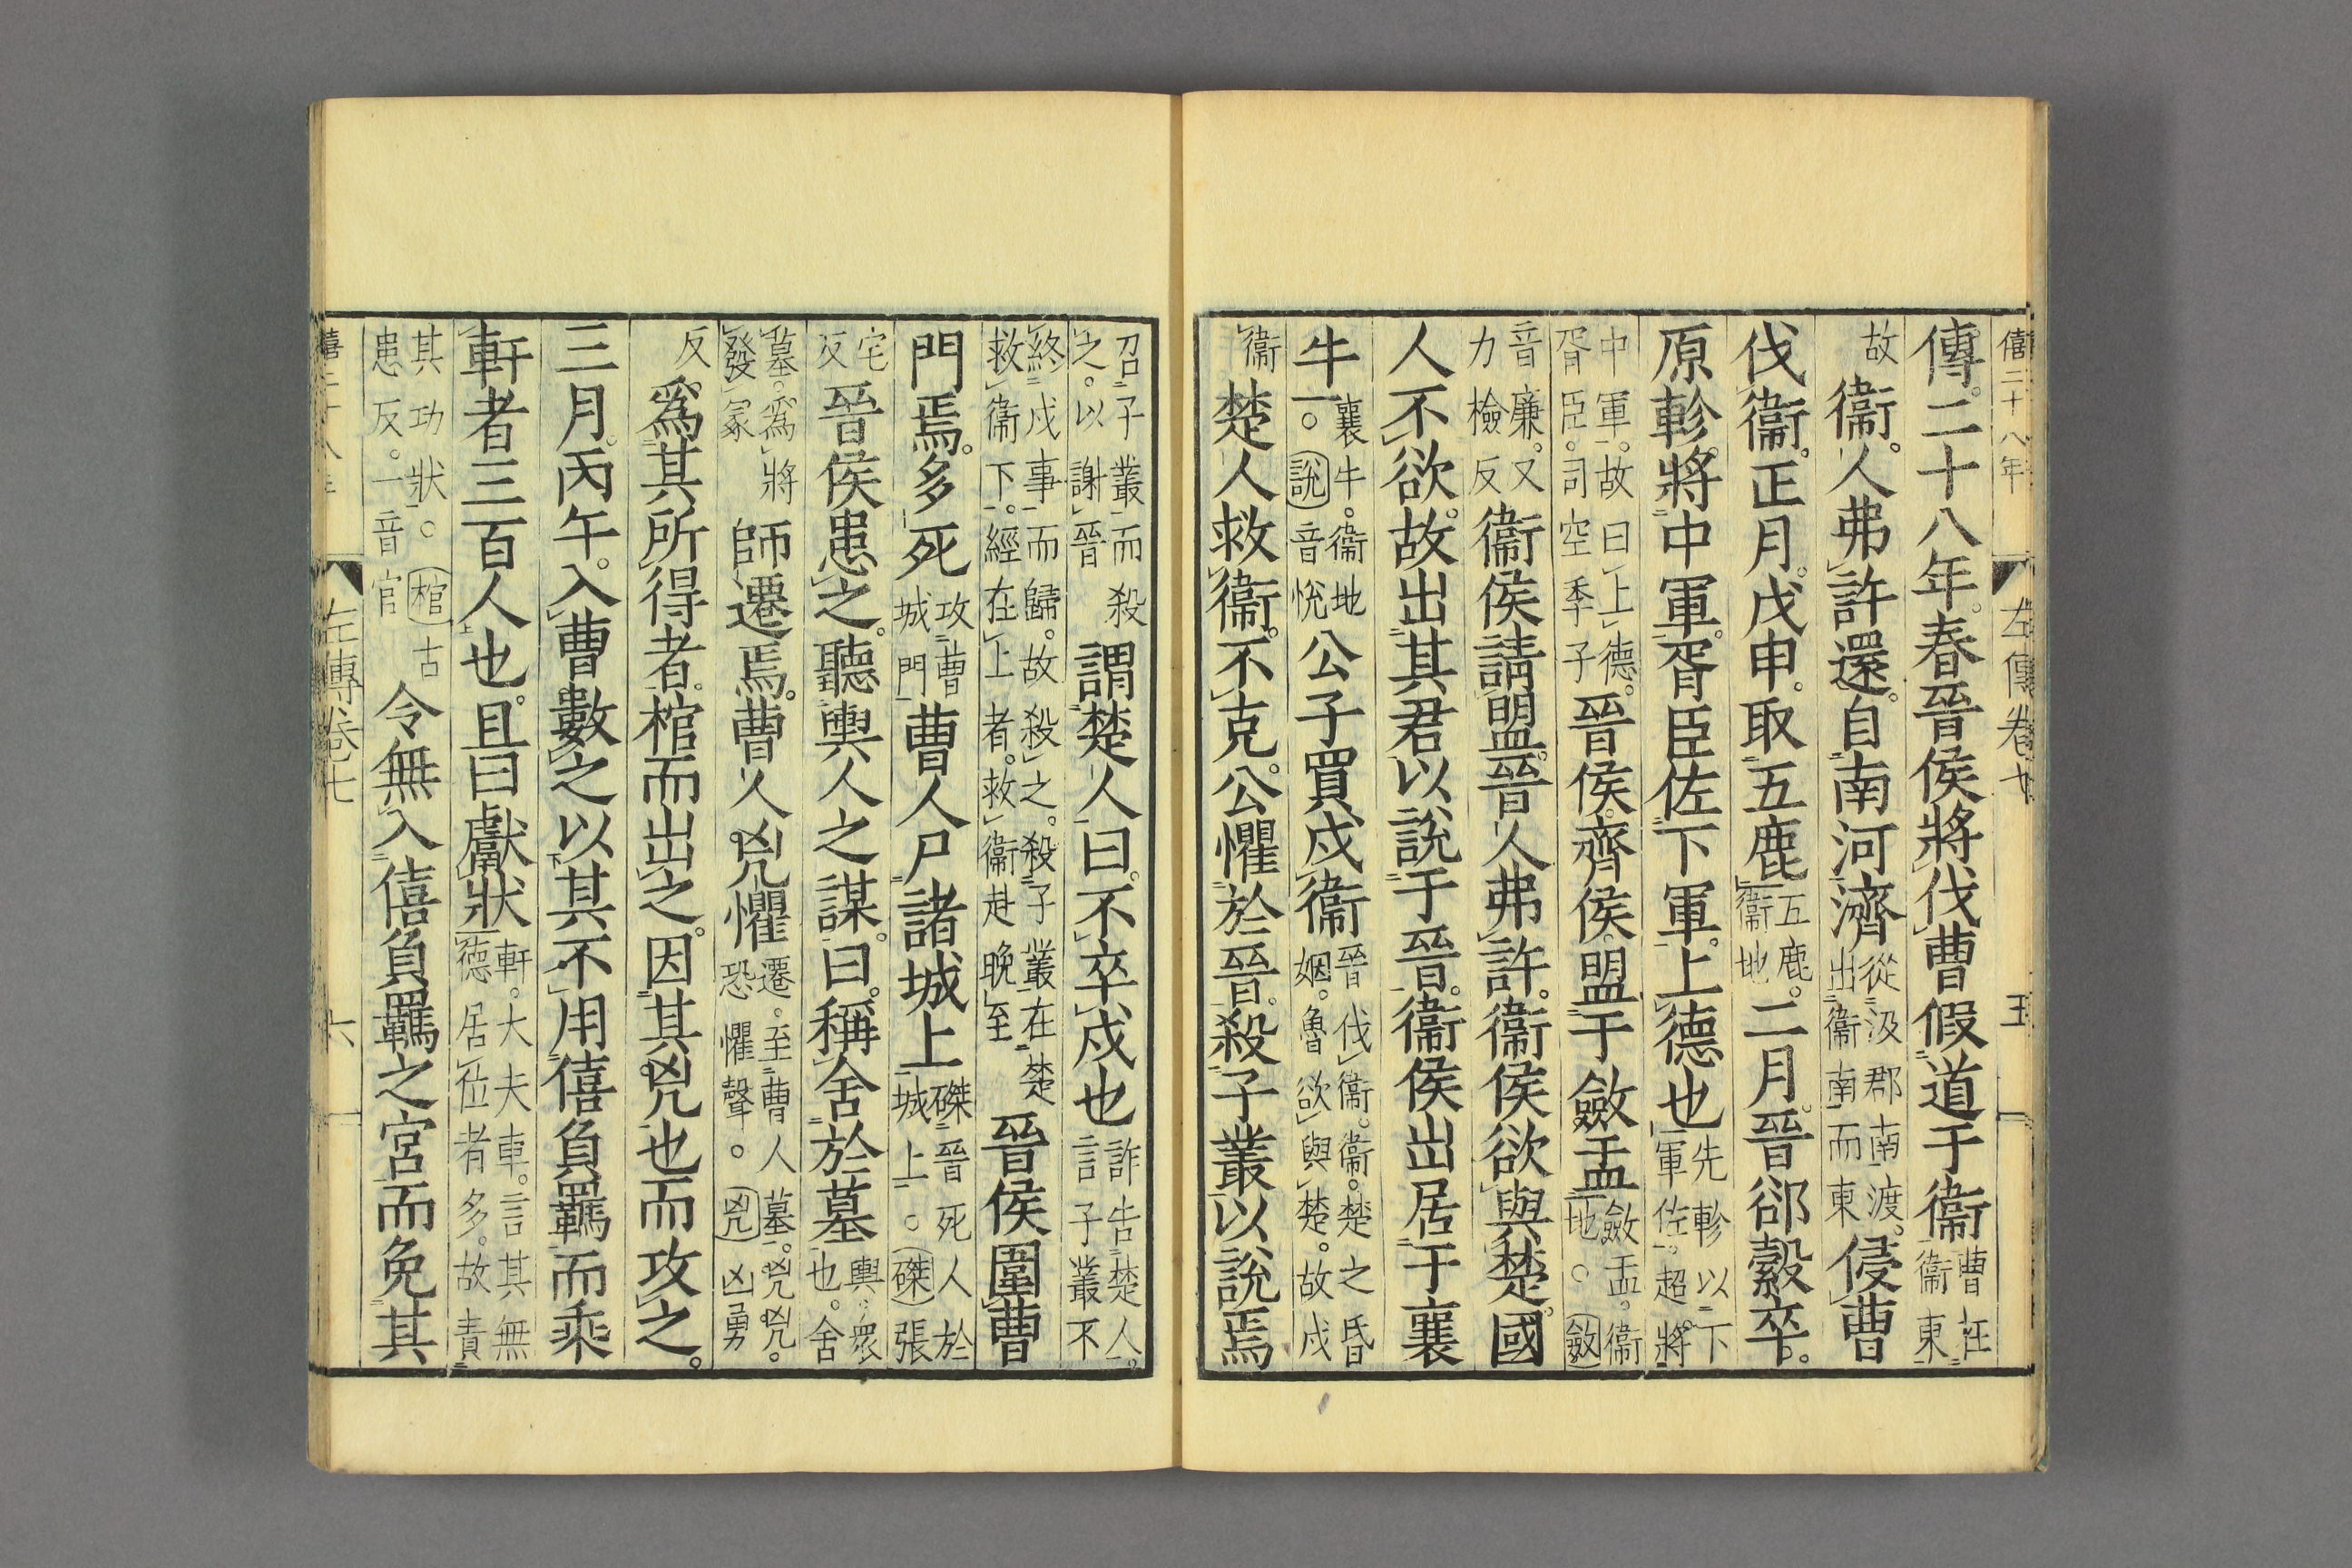 僖二十八年 左傳卷七 五
傳。二十八年。春晉侯將伐曹假道于衞曹在衞東
故衞。人弗許還。自南河濟從汲郡南渡。出衞南而東侵曹
伐衞。正月。戊申。取五鹿五鹿。衞地二月。晉郤縠卒。
原軫。將中軍。胥臣佐下軍。上德也先軫以下軍佐。超將
中軍。故曰上德。胥臣。司空季子晉侯。齊侯。盟于斂盂斂盂。衞地○斂
音廉。又力檢反衞侯請盟。晉人弗許。衞侯欲與楚。國
人不欲。故出其君以說于晉。衞侯出居于襄
牛襄牛。衞地○說音悅公子買戍衞晉伐衞。衞。楚之昏姻。魯欲與楚。故戍
衞楚人救衞。不克。公懼於晉。殺子叢以說焉
召子叢而殺之。以謝晉謂楚人曰。不卒戍也詐告楚人。言子叢不
終戍事而歸。故殺之。殺子叢在楚救衞下。經在上者。救衞赴晚至晉侯圍曹
門焉。多死攻曹城門曹人尸諸城上磔晉死人於城上○磔張
宅反晉侯患之。聽輿人之謀。曰。稱舍於墓輿。衆也。舍
墓。爲將發冢師遷焉。曹人兇懼遷。至曹人墓。兇兇。恐懼聲○兇凶勇
反爲其所得者。棺而出之。因其兇也而攻之。
三月。丙午。入曹數之以其不用僖負羈而乘
軒者三百人也。且曰獻狀軒。大夫車。言其無德居位者多。故責
其功狀○棺古患反。一音官令無入僖負羈之宮而免其
僖二十八年 左傳卷七 六